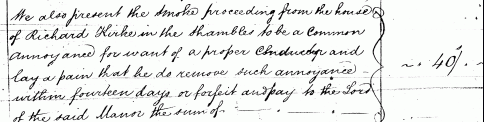 We also present the smoke proceeding from the house
of Richard Kirke in the Shambles to be a Common
annoyance for want of a proper Conductor and
lay a pain that he do remove such annoyance
within fourteen days or forfeit and pay to the Lord
of the said Manor the sum of 40/